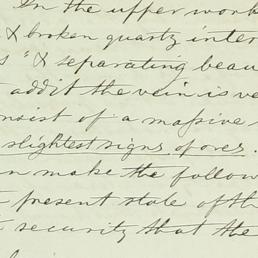 In the upper work
& broken quartz inter
s" & separating beau
addit the vein is ve
nsist of a massive
slightest signs of ores.
n make the follow
present state of th
security that the